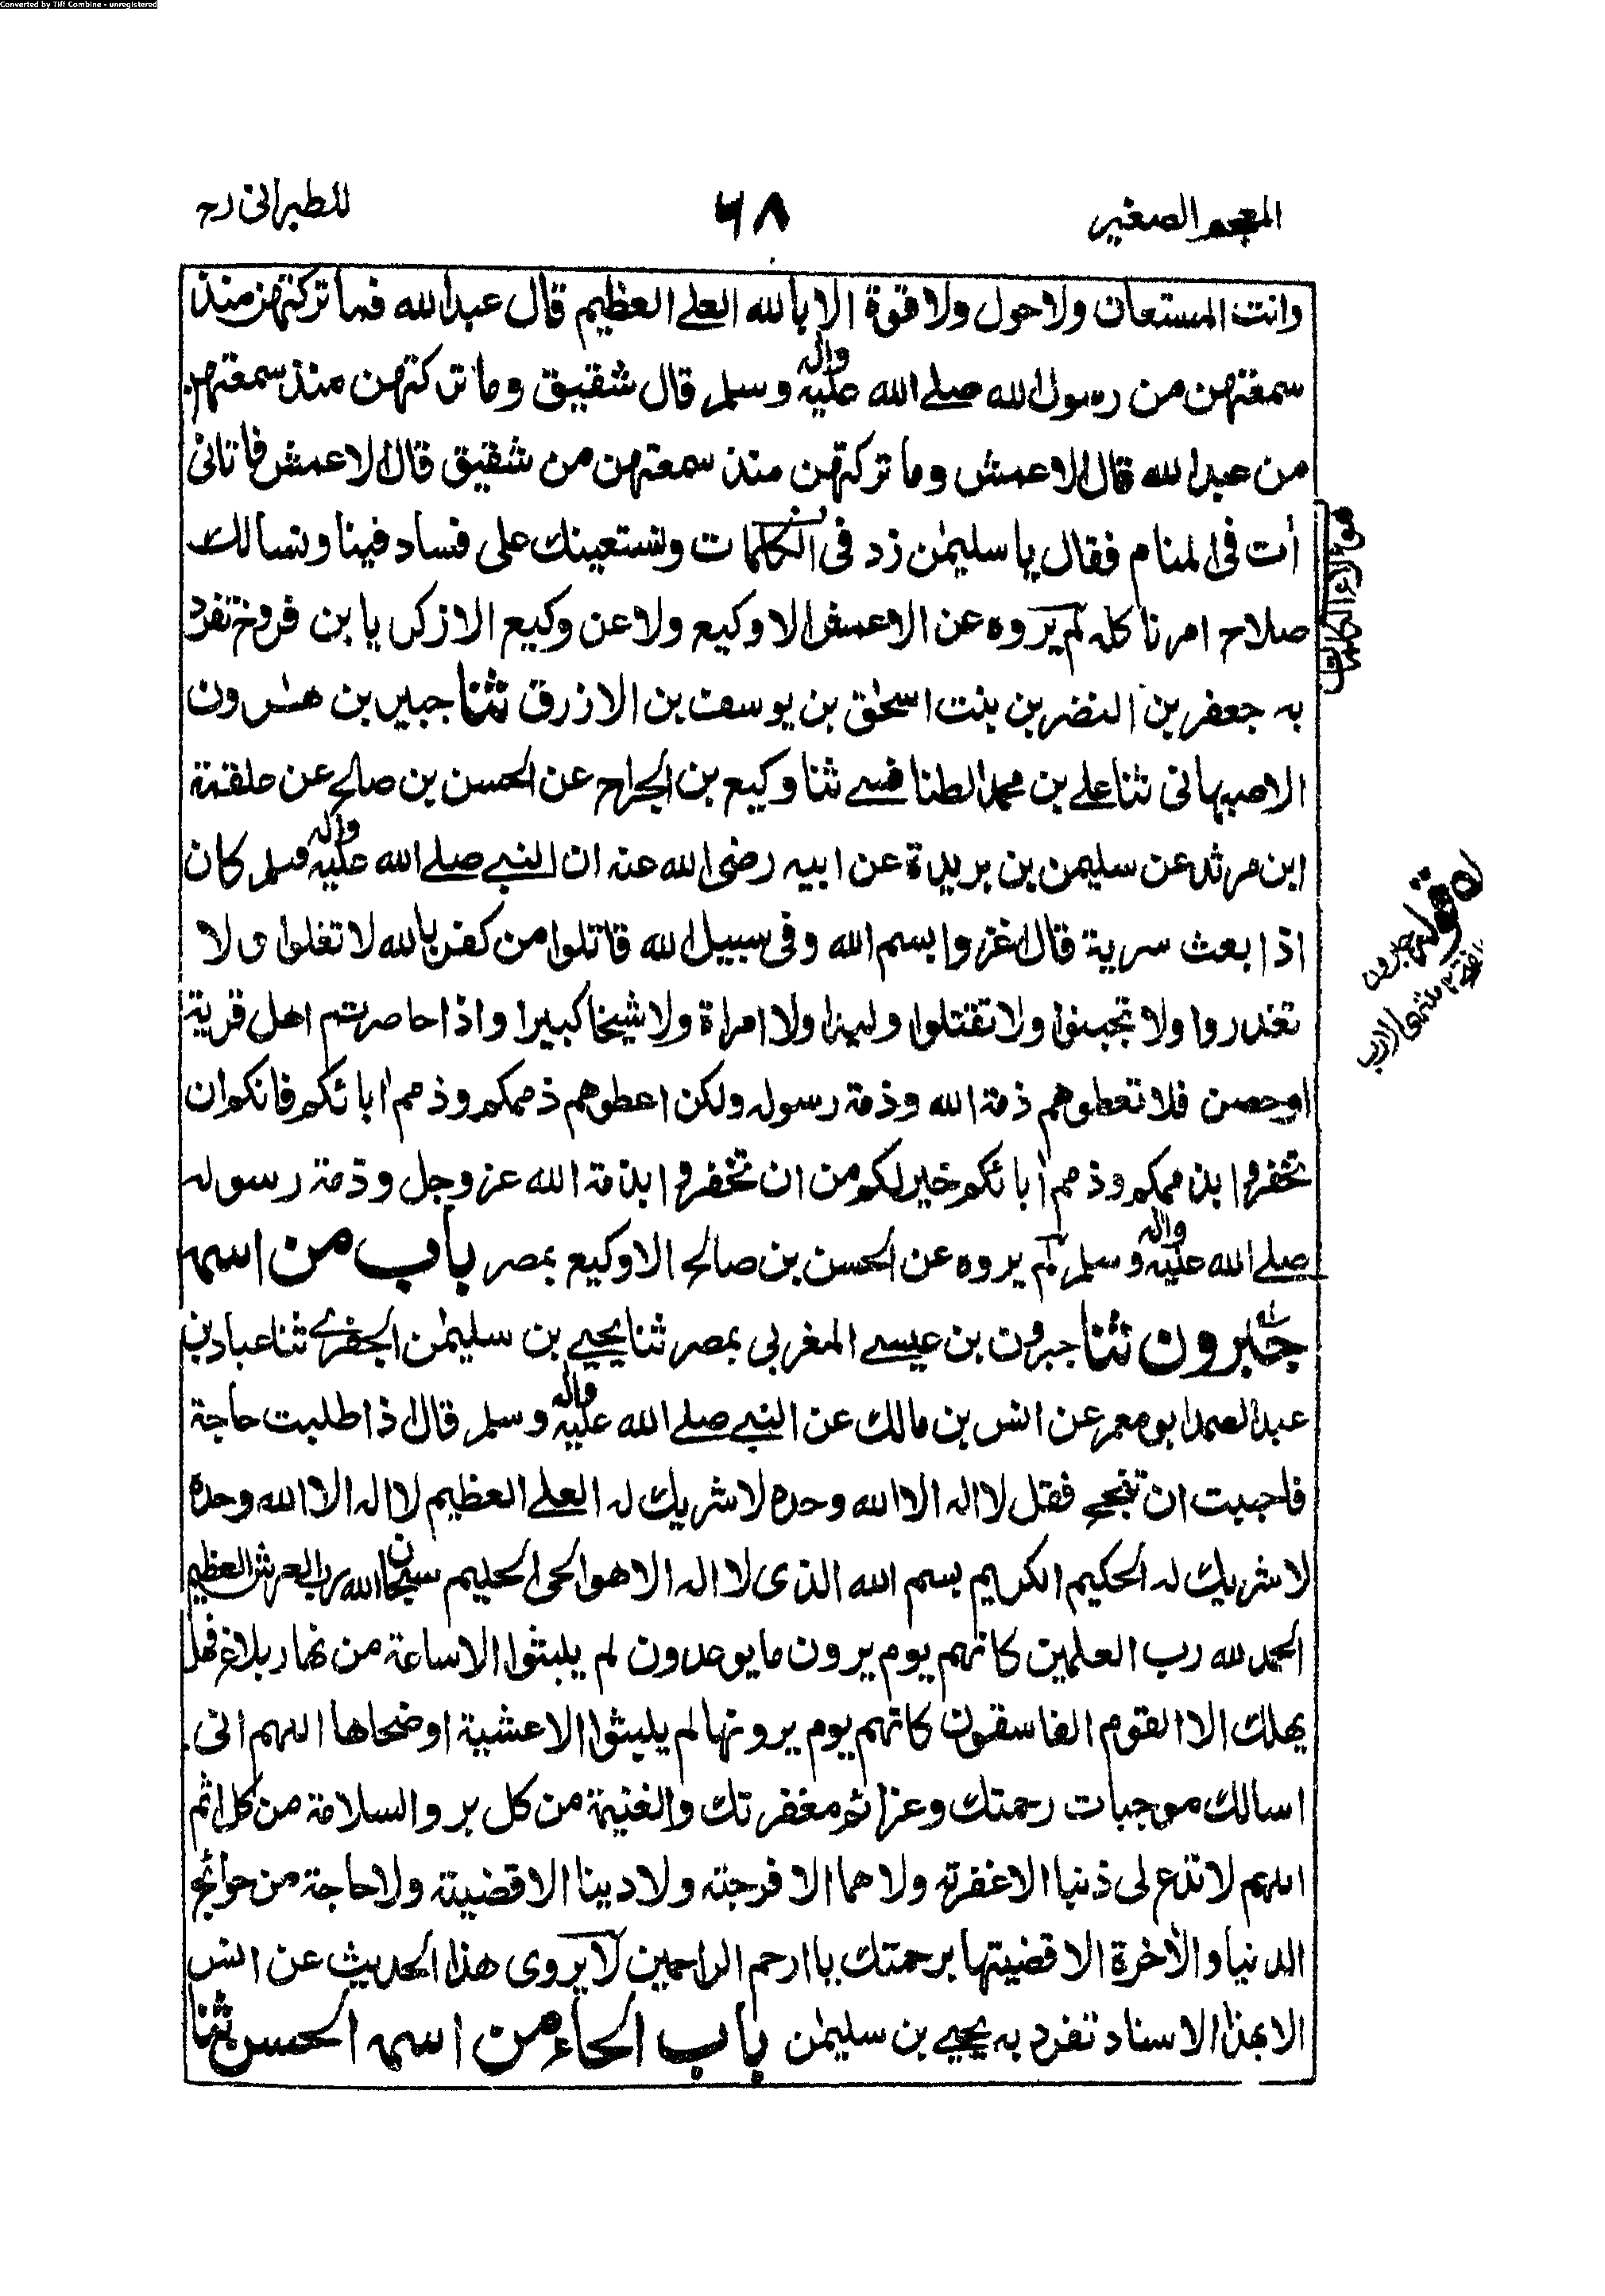 Converted by Tiff Combine - unregistered
المعجم الصغير
٦٨
للطبرانی رح
وانت المستعان ولا حول ولا قوة الا بالله العلے العظيم قال عبدالله فما تركتهن منذ
سمعتهن من رسول الله صلے الله عليه واٰله وسلم قال شقيق وما تركتهن منذ سمعتهن
من عبدالله قال الاعمش وما تركتهن منذ سمعتهن من شقيق قال الاعمش فاتانی
اٰت فی المنام فقال يا سليمٰن زد فی الكلمات ونستعينك على فساد فينا ونسالك
صلاح امرنا كله لم يروه عن الاعمش الا وكيع ولا عن وكيع الا زكريا بن فروخ تفرد
به جعفر بن النضر بن بنت اسحٰق بن يوسف بن الازرق ثنا جبير بن هٰرون
الاصبهانی ثنا علے بن محمد الطنافسے ثنا وكيع بن الجراح عن الحسن بن صالح عن علقمة
ابن مرثد عن سليمن بن بريدة عن ابيه رضی الله عنه ان النبے صلے الله عليه واٰله وسلم كان
اذا بعث سرية قال اغزوا بسم الله وفی سبيل الله قاتلوا من كفر بالله لا تغلوا و لا
تغدروا ولا تجبنوا ولا تقتلوا وليدا ولا امراة ولا شيخا كبيرا واذا حاصرتم اهل قرية
او حصن فلا تعطوهم ذمة الله وذمة رسوله ولكن اعطوهم ذممكم وذمم اٰبائكم فانكم ان
تخفروا بذممكم وذمم اٰبائكم خير لكم من ان تخفروا بذمة الله عز وجل وذمة رسوله
صلے الله عليه واٰله وسلم لم يروه عن الحسن بن صالح الا وكيع بمصر باب من اسمه
جبرون ثنا جبرون بن عيسے المغربی بمصر ثنا يحيے بن سليمٰن الجفرے ثنا عباد بن
عبد الصمد ابو معمر عن انس بن مالك عن النبے صلے الله عليه واٰله وسلم قال اذا طلبت حاجة
فاحببت ان تنجح فقل لا اله الا الله وحده لا شريك له العلے العظيم لا اله الا الله وحده
لا شريك له الحكيم الكريم بسم الله الذی لا اله الا هو الحی الحليم سبحان الله رب العرش العظيم
الحمد لله رب العلمين كانهم يوم يرون ما يوعدون لم يلبثوا الا ساعة من نهار بلاغ فهل
يهلك الا القوم الفاسقون كانهم يوم يرونها لم يلبثوا الا عشية او ضحاها اللهم انی
اسالك موجبات رحمتك وعزائم مغفرتك والغنيمة من كل بر والسلامة من كل اثم
اللهم لا تدع لی ذنبا الا غفرته ولا هما الا فرجته ولا دينا الا قضيته ولا حاجة من حوائج
الدنيا والاٰخرة الا قضيتها برحمتك يا ارحم الراحمين لا يروى هذا الحديث عن انس
الا بهذا الاسناد تفرد به يحيے بن سليمٰن باب الحاء من اسمه الحسن ثنا